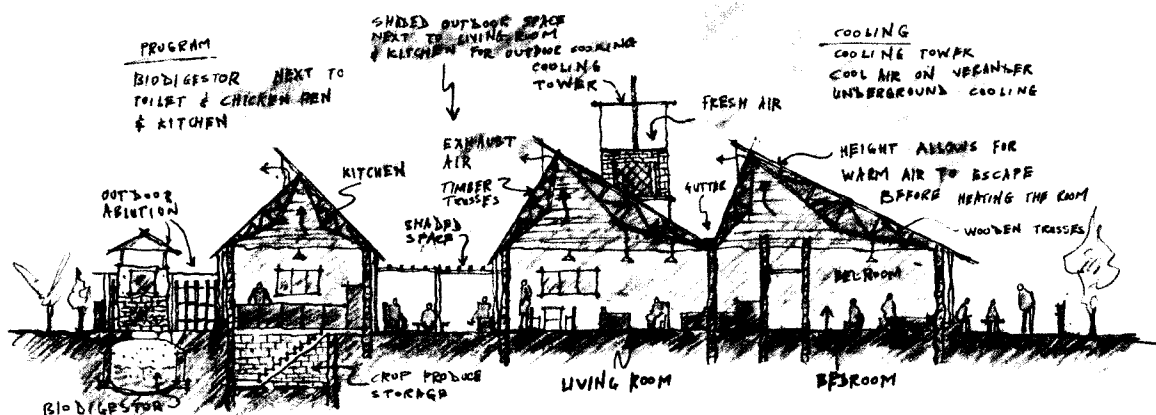 PROGRAM
BIODIGESTOR NEXT TO
TOILET & CHICKEN PEN
& KITCHEN
SHADED OUTDOOR SPACE
NEXT TO LIVING ROOM
& KITCHEN FOR OUTDOOR COOKING
COOLING
TOWER
COOLING
COOLING TOWER
COOL AIR ON VERANDER
UNDERGROUND COOLING
FRESH AIR
EXHAUST
AIR
TIMBER
TRUSSES
KITCHEN
OUTDOOR
ABLUTION
SHADED
SPACE
GUTTER
HEIGHT ALLOWS FOR
WARM AIR TO ESCAPE
BEFORE HEATING THE ROOM
WOODEN TRUSSES
BEDROOM
CROP PRODUCE
STORAGE
LIVING ROOM
BEDROOM
BIODIGESTOR